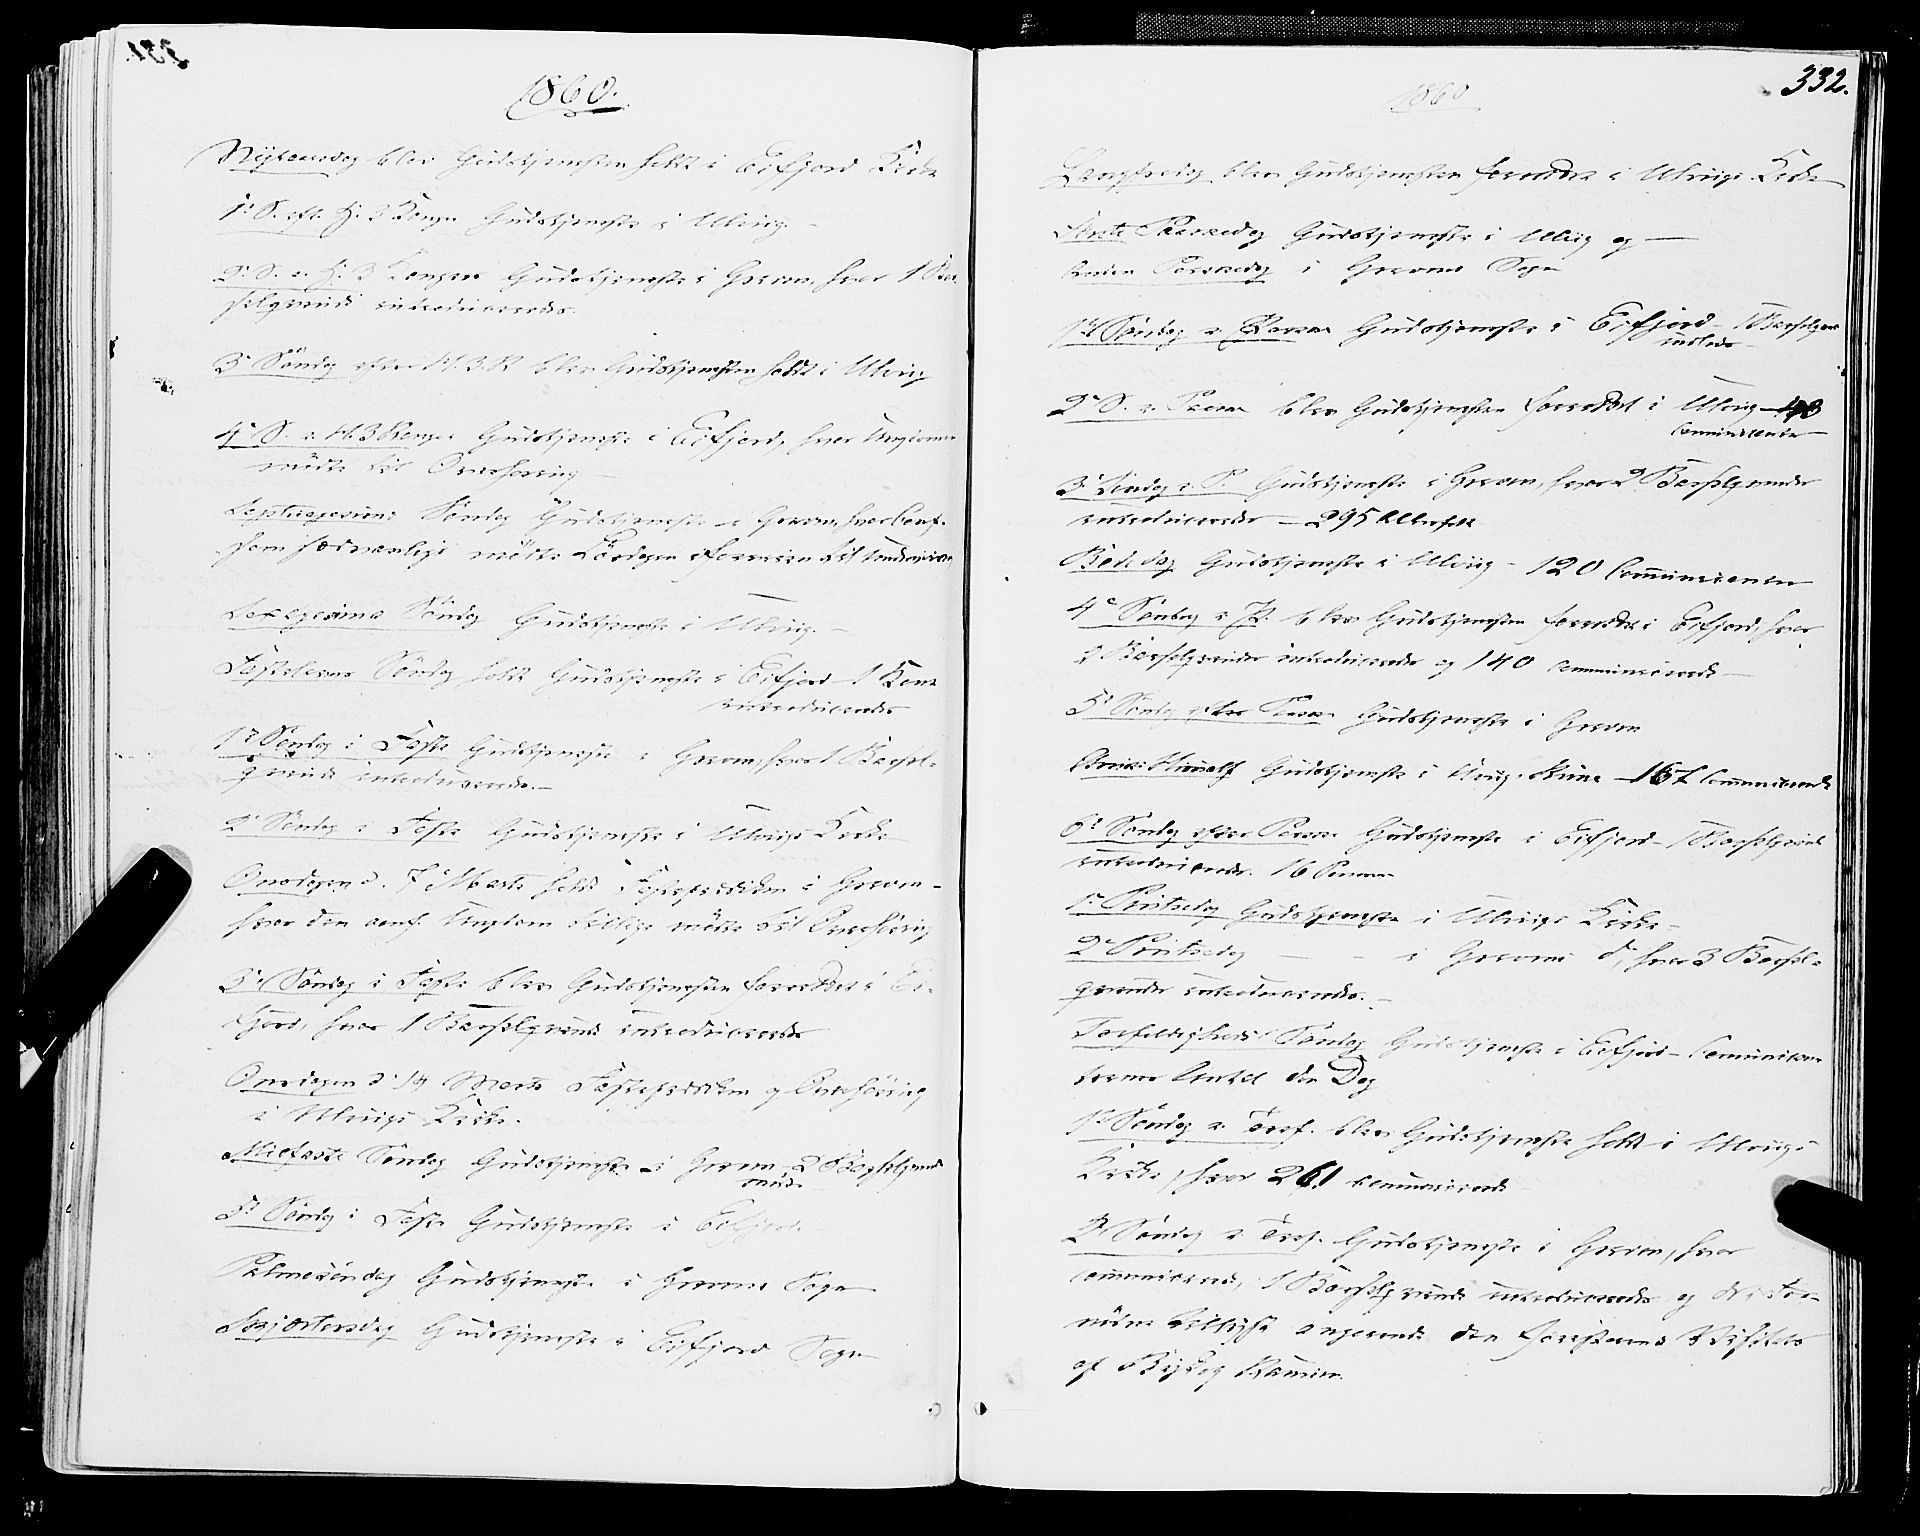 1860.
Nytaarsdag blev Gudstjenesten holdt i Eifjord Kirke
1ste S. eft. H. 3 Konger Gudstjeneste i Ulvig.
2d S. e. H. 3 Konger Gudstjeneste i Graven, hvor 1 Bar-
selqvinde introduceredes.
3d Söndag efter H. 3. K. blev Gudstjenesten holdt i Ulvig
4de S. e. H. 3 Konger Gudstjeneste i Eifjord, hvor Ungdommen
mödte til Overhöring
Septuagesima Söndag Gudstjeneste i Graven, hvor Conf.
som sædvanligt mödte Lördagen
Sexagesima Söndag Gudstjeneste i Ulvig.
Fastelavns Söndag holdt Gudstjeneste i Eifjord 1 Kone
introduceredes
1ste Söndag i Faste Gudstjeneste i Graven, hvor 1 Barsel-
qvinde introduceredes.
2d Söndag i Faste Gudstjeneste i Ulvigs Kirke
Onsdagen d. 7 Marts holdt Fasteprædiken i Graven-
hvor den conf. Ungdom tillige mödte til Overhöring
3d Söndag i Faste blev Gudstjenesten forrettet i Ei-
fjord, hvor 1 Barselqvinde introduceredes
Onsdagen d 14 Marts Fasteprædiken og Overhöring
i Ulvigs Kirke.
Midfaste Söndag Gudstjeneste i Graven 2 Barselqvinder
5te Söndag i Faste Gudstjeneste i Eifjord
Palmesöndag Gudstjeneste i Gravens Sogn
Skjærtorsdag Gudstjeneste i Eifjord Sogn
332.
1860
Langfredag blev Gudstjenesten forrettet i Ulvigs Kirke
Förste Paaskedag Gudstjeneste i Ulvig og
Anden Paaskedag i Gravens Sogn
1ste Söndag e. Paaske Gudstjeneste i Eifjord - 1 Barselqvinde
indledes
2d S. e. Paaske blev Gudstjenesten forrettet i Ulvig
Communicanter
3d Söndag e. P. Gudstjeneste i Graven, hvor 2 Barselqvinder
introduceredes - 295 Altergjester
Bededag Gudstjeneste i Ulvig - 120 Communicanter
4de Söndag e. P. blev Gudstjenesten forrettet i Eifjord, hvor
2 Barselqvinder introduceredes og 140 communicerede
5te Söndag efter Paaske Gudstjeneste i Graven
Christi Himmelf Gudstjeneste i Ulvigs Kirke - 167 Communicerede
6te Söndag efter Paaske Gudstjeneste i Eifjord - 1 Barselqvinde
introduceredes. 16 Personer
1ste Pintsedag Gudstjeneste i Ulvigs Kirke
2d Pintsedag - - i Gravens do, hvor 3 Barsel-
qvinder introduceredes.
Trefoldigheds Söndag Gudstjeneste i Eifjord - Communicanternes
Antal den Dag
1ste Söndag e. Tref. blev Gudstjeneste holdt i Ulvigs
Kirke, hvor 261 communicerede
2d Söndag e. Tref. Gudstjeneste i Graven, hvor
communicerede, 1 Barselqvinde introduceredes og
angaaende den
af